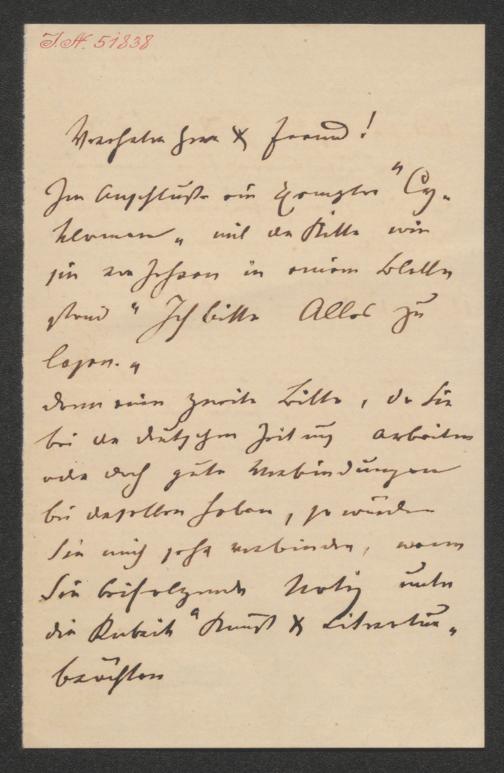 J. N. 51838
Verehrter Herr & Freund!
Im Anschluße ein Exemplar "Cy-
klamen" mit der Bitte wie
sie vor Jahren in einem Blatte
stand "Ich bitte Alles zu
lesen."
Dann eine zweite Bitte, da Sie
bei der deutschen Zeitung arbeiten
oder doch gute Verbindungen
bei derselben haben, so würden
Sie mich sehr verbinden, wenn
Sie beifolgende Notiz unter
die Rubrik "Kunst & Literatur"